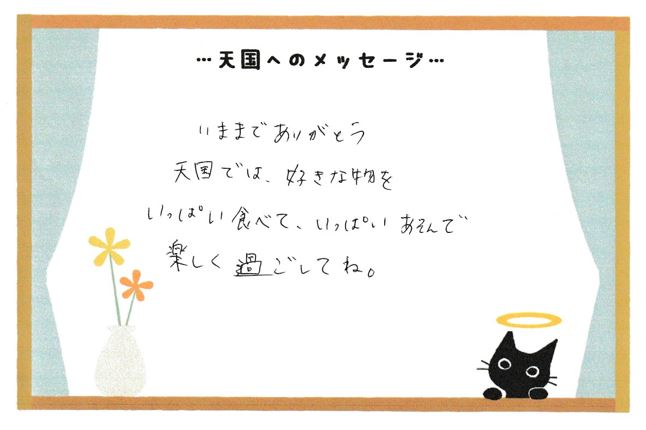 …天国へのメッセージ…
いままでありがとう
天国では、好きな物を
いっぱい食べて、いっぱいあそんで
楽しく過ごしてね。